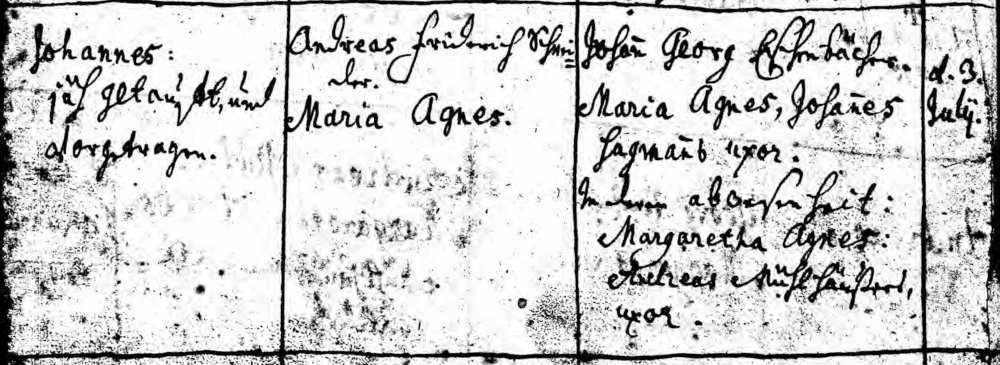 Johannes:
jäh getauft, und
vorgetragen.
Andreas Friderich Schnei=
der.
Maria Agnes.
Johan̄ Georg Eschenbächer.
Maria Agnes, Johan̄es
Hagman̄s uxor.
In deren abwesenheit:
Margaretha Agnes:
Andreas Mühlhäußers,
uxor.
d. 3.
Julij.